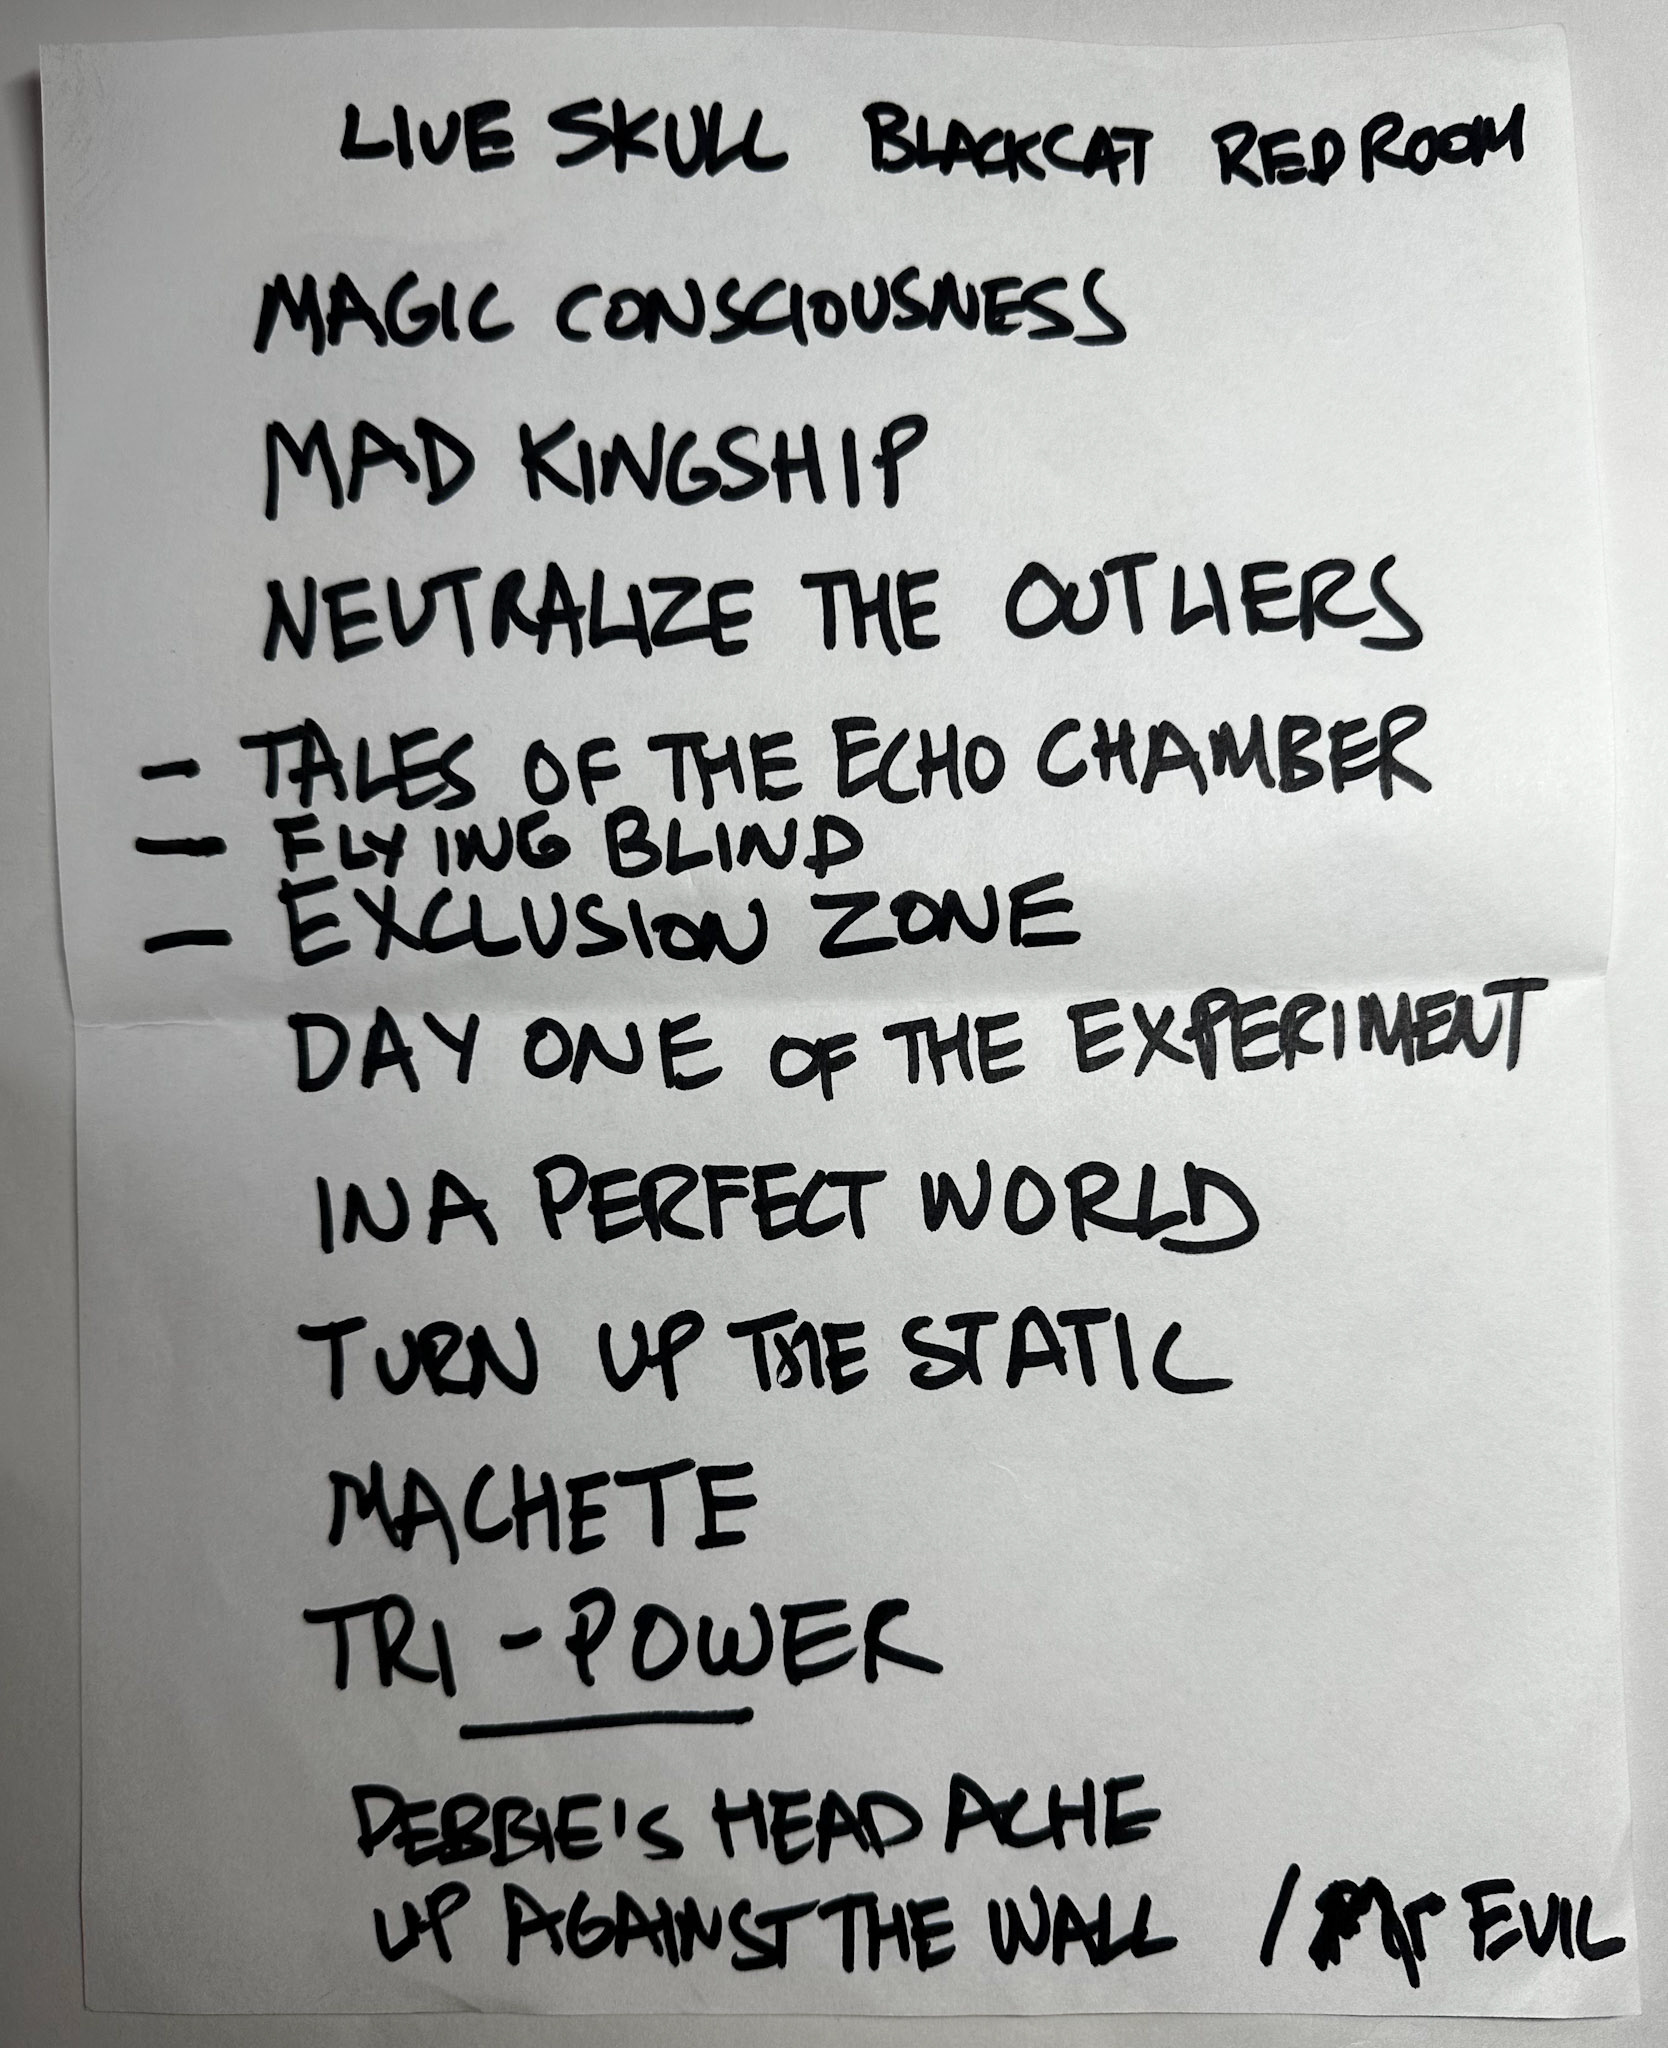 LIVE SKULL BLACKCAT RED ROOM
MAGIC CONSCIOUSNESS
MAD KINGSHIP
NEUTRALIZE THE OUTLIERS
- TALES OF THE ECHO CHAMBER
- FLYING BLIND
- EXCLUSION ZONE
DAY ONE OF THE EXPERIMENT
IN A PERFECT WORLD
TURN UP THE STATIC
MACHETE
TRI-POWER
DEBBIE'S HEADACHE
UP AGAINST THE WALL / Mr EVIL